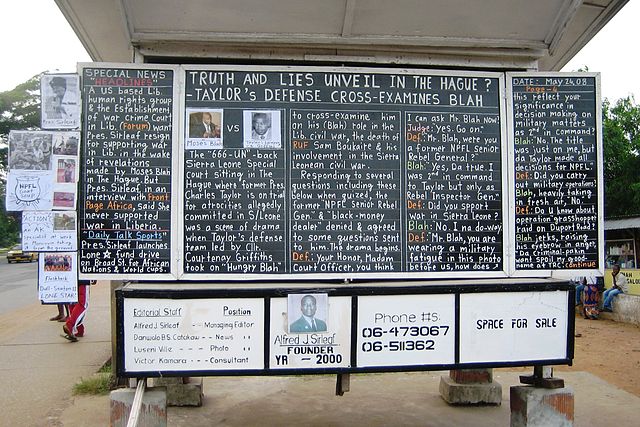 SPECIAL NEWS
"HEADLINES"
A US based Lib.
human rights group
& the Establishment
of war crime Court
in Lib, (Forum) want
Pres. Sirleaf resign
for supporting war
in Lib. in the wake
of revelations
made by Moses Blah
in The Hague. But
Pres. Sirleaf, in an
interview with Front
Page Africa, said She
never supported
war in Liberia.
"Daily Talk Sports"
Pres. Sirleaf launches
Lone ☆ fund drive
on Broad St. for African
Nations & World Cups.
TRUTH AND LIES UNVEIL IN THE HAGUE ?
-TAYLOR'S DEFENSE CROSS-EXAMINES BLAH
VS
Moses Blah
The "666-UN"-back
Sierra Leone Special
court sitting in The
Hague where former Pres.
Charles Taylor is on trial
for atrocities allegedly
committed in S/Leone
was a scene of drama
when Taylor's defense
team led by Cllr.
Courtenay Griffiths
took on "Hungry Blah"
to cross-examine him
on his (Blah) role in the
Lib. civil war, the death of
RUF Sam Boukaire & his
involvement in the Sierra
Leonean civil war.
Responding to several
questions including these
below when quized, the
former NPFL Senior Rebel
Gen." & "black-money
dealer" denied & agreed
to some questions sent
to him. The drama begins.
Def.: Your Honor, Madam
Court Officer, you think
I can ask Mr. Blah Now?
Judge: Yes. Go on."
Def.: "Mr. Blah, were you
a former NPFL Senior
Rebel General ?"
Blah: "Yes, Da true. I
was 2nd in command
to Taylor but only as
Rebel Inspector Gen."
Def.: Did you support
war in Sierra Leone?
Blah: No. I na do-way."
Def.: "Mr. Blah, you are
wearing a military
fatigue in this photo
before us, how does ↗
DATE: May 24,08
Page-6
this reflect your
significance in
decision making on
military matters
as 2nd in Command?
Blah: No. The title
was just on me, but
da Taylor made all
decisions for NPFL.
Def.: Did you carry
out military operations?
Blah, heavily taking
in fresh air, No."
Def.: Do U knew about
operation grasshopper
raid on Duport Road?
Blah jerks, raising
his eyebrow in anger,
"Da Criminal U
want spoil my good-
name at TRC. continue
Pres. Sirleaf
NPFL
LONE STAR
Editorial Staff Position
Alfred J. Sirleaf -- Managing Editor
Danwala B.S. Catakaw -- News "
Luseni Ville --- Photo "
Victor Kamara -- Consultant
Alfred J Sirleaf
FOUNDER
YR - 2000
Phone #s.
06-473067
06-511362
SPACE FOR SALE